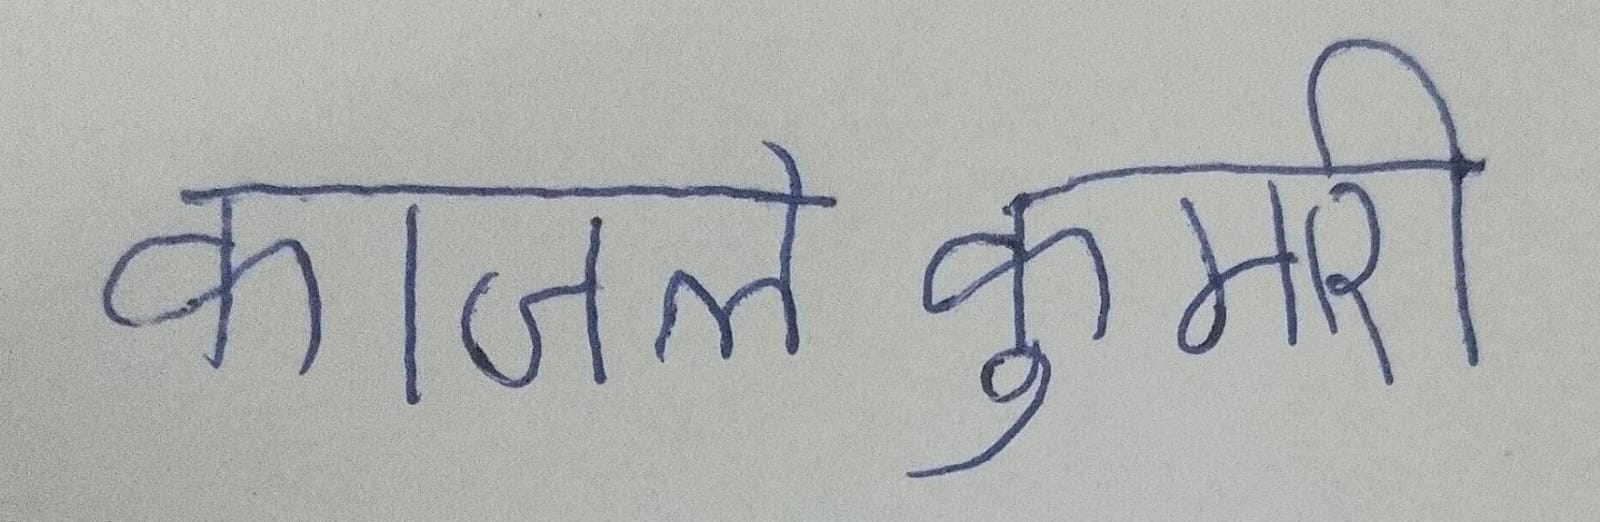 काजले कुमरी